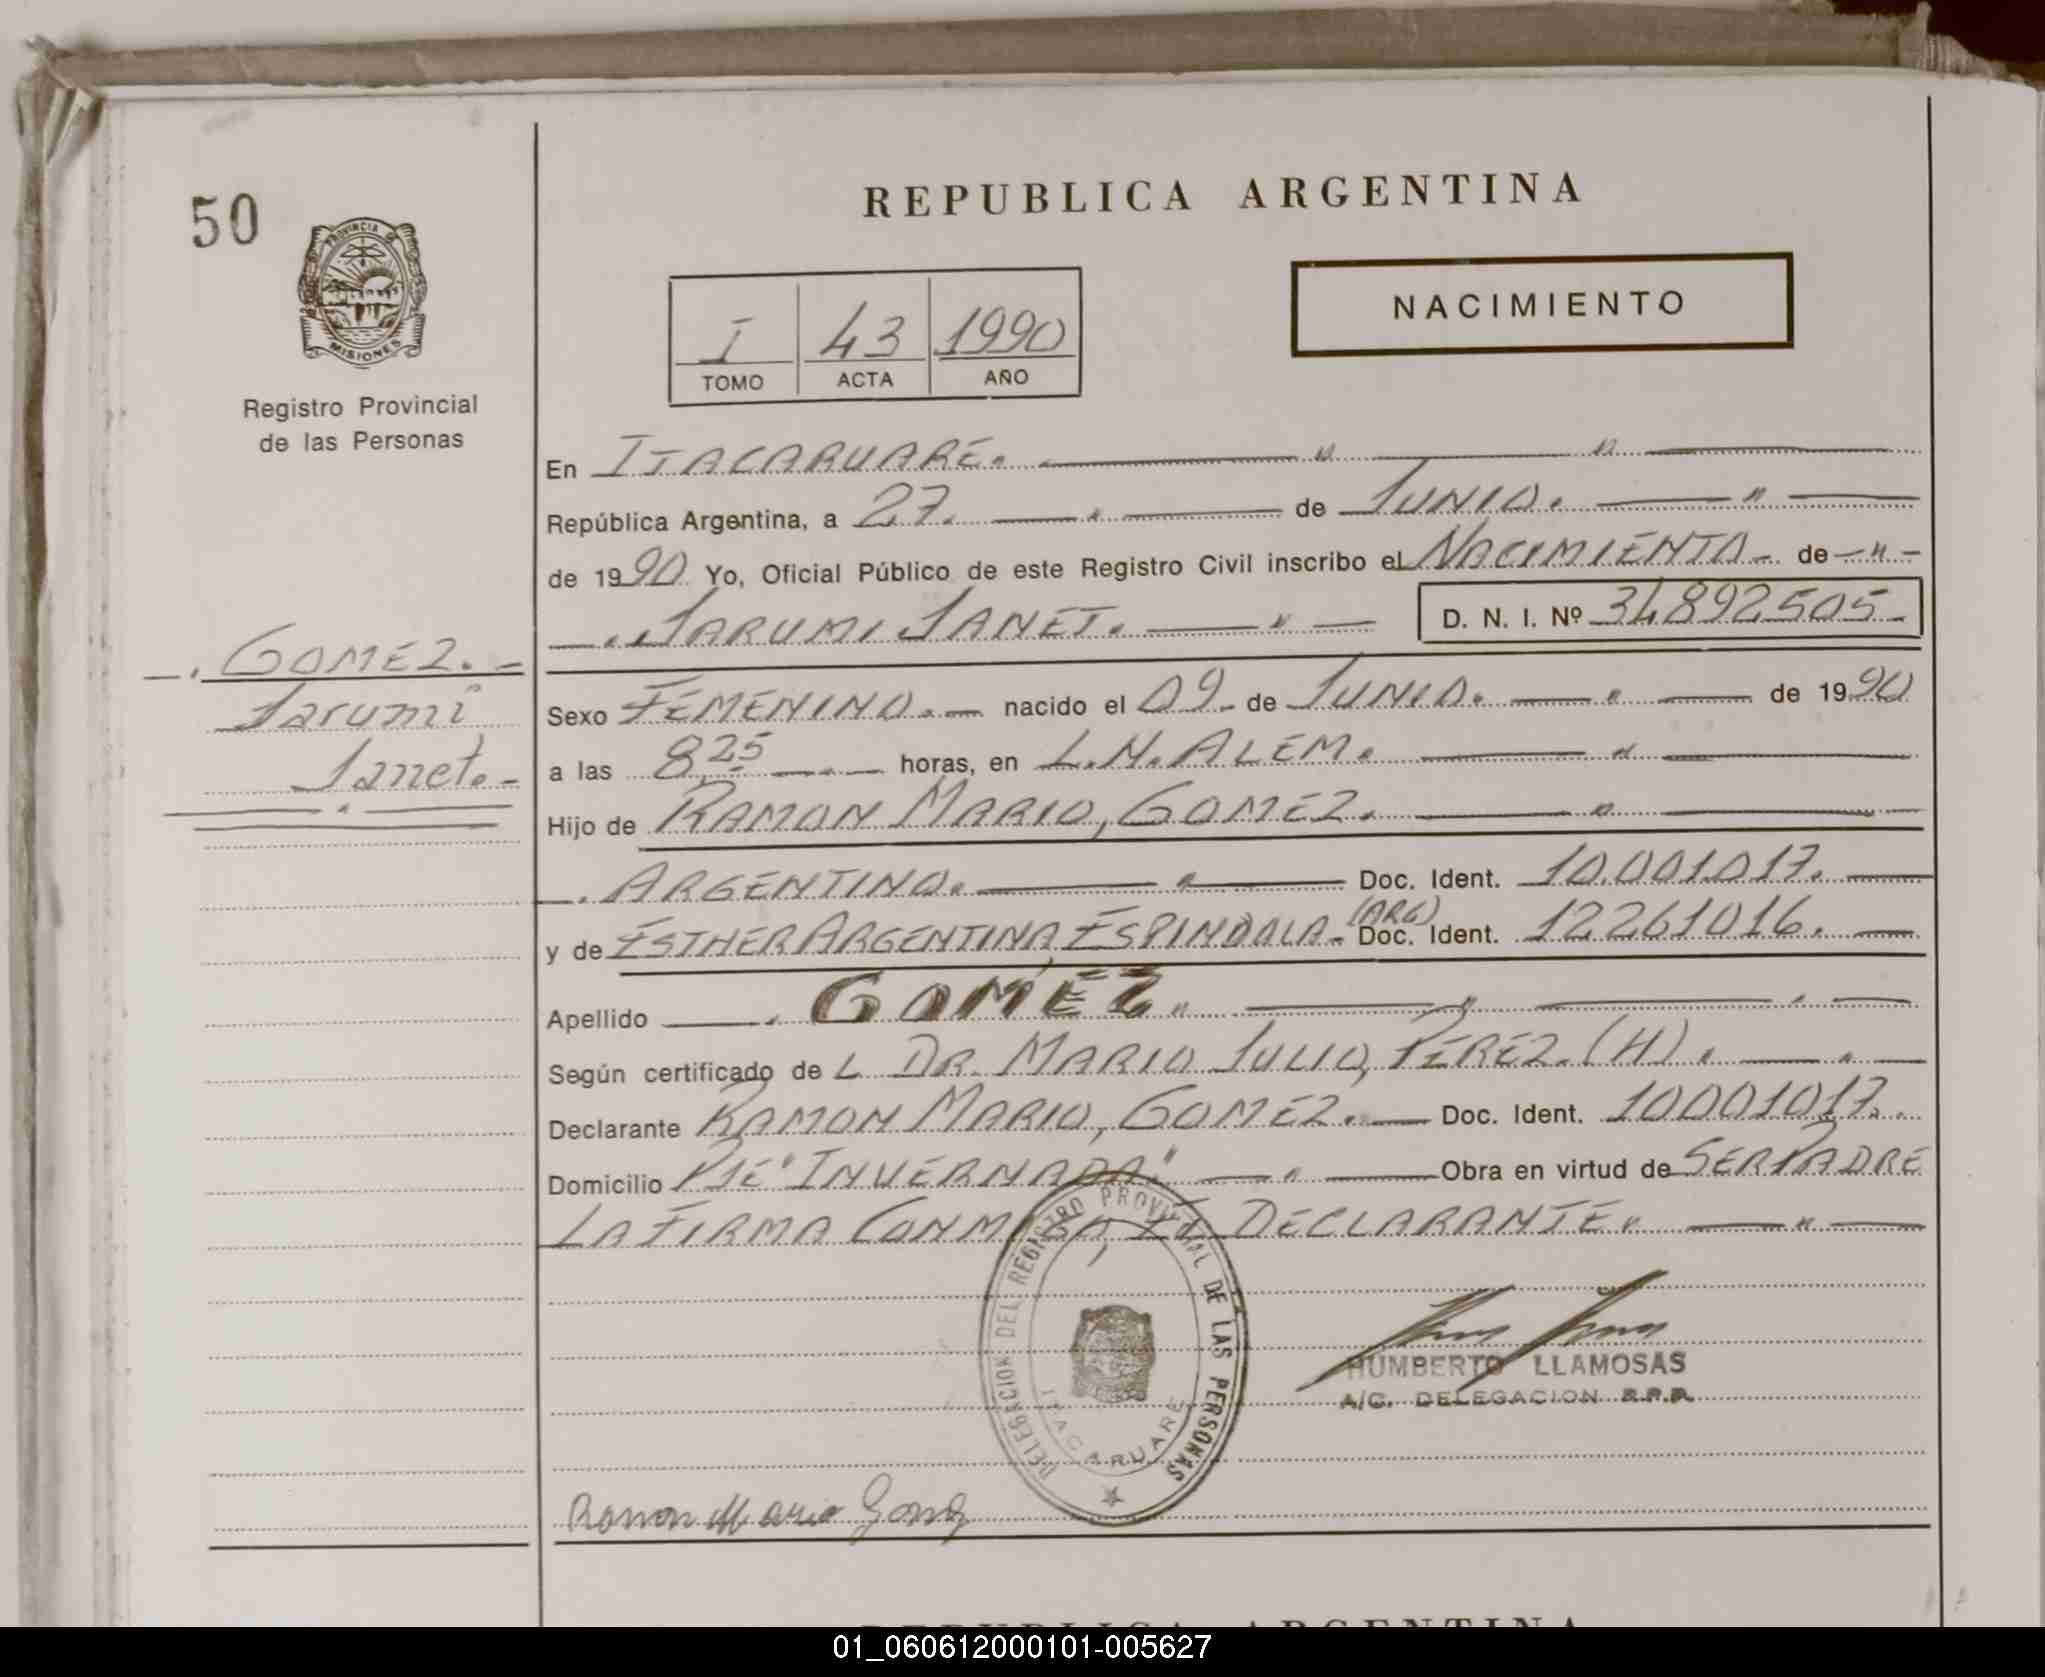 50
PROVINCIA DE
MISIONES
Registro Provincial
de las Personas
REPUBLICA ARGENTINA
I 43 1990
TOMO ACTA AÑO
NACIMIENTO
En ITACARUARE.
República Argentina, a 27. de JUNIO.
de 1990 Yo, Oficial Público de este Registro Civil inscribo el NACIMIENTO de
JARUMI JANET. D. N. I. Nº 34892505
GOMEZ.
Jarumi
Janet.
Sexo FEMENINO. nacido el 09 de JUNIO. de 1990
a las 8,25 horas, en L.N. ALEM.
Hijo de RAMON MARIO, GOMEZ.
ARGENTINO. Doc. Ident. 10.001.017.
y de ESTHER ARGENTINA ESPINDOLA (ARG) Doc. Ident. 12261016.
Apellido GOMEZ
Según certificado de L DR. MARIO JULIO, PEREZ. (H).
Declarante RAMON MARIO, GOMEZ. Doc. Ident. 10001017.
Domicilio PJE "INVERNADA" Obra en virtud de SER PADRE
LA FIRMA CONMIGO EL DECLARANTE
DELEGACION DEL REGISTRO PROVINCIAL DE LAS PERSONAS
ITACARUARE
HUMBERTO LLAMOSAS
A/C. DELEGACION R.P.P.
Ramon Mario Gomez
REPUBLICA ARGENTINA
01_060612000101-005627